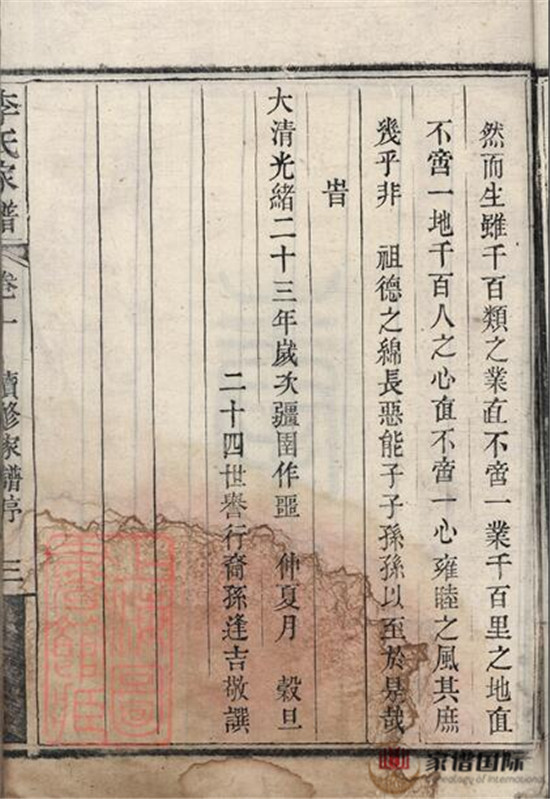 然而生雖千百類之業直不啻一業千百里之地直
不啻一地千百人之心直不啻一心雍睦之風其庶
幾乎非 祖德之綿長惡能子子孫孫以至於是哉
旹
大清光緒二十三年歲次彊圉作噩 仲夏月 穀旦
二十四世譽行裔孫逢吉敬譔
李氏家譜 卷一 續修家譜序 三
家谱国际
Genealogy of International